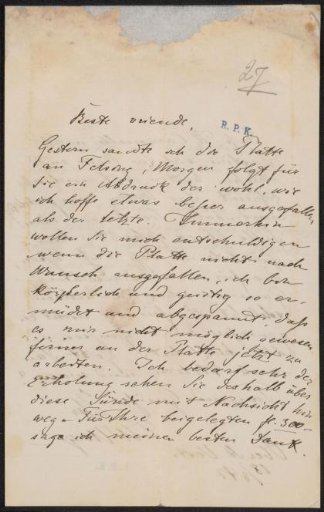 27
Beste vriende,
R.P.K.
Gestern sandte ich die Platte
an Felsing, Morgen folgt für
Sie ein Abdruck der wohl, wie
ich hoffe etwas besser ausgefallen
als der letzte. Immerhin
wollen Sie mich entschuldigen
wenn die Platte nicht nach
Wunsch ausgefallen, ich bin
körperlich und geistig so er-
müdet und abgespannt, dass
es mir nicht möglich gewesen
ferner an der Platte jetzt zu
arbeiten. Ich bedarf sehr der
Erholung sehen Sie deshalb über
diese Sünde mit Nachsicht hin
weg. Für Ihre beigelegten fr. 300
sage ich meinen besten Dank.